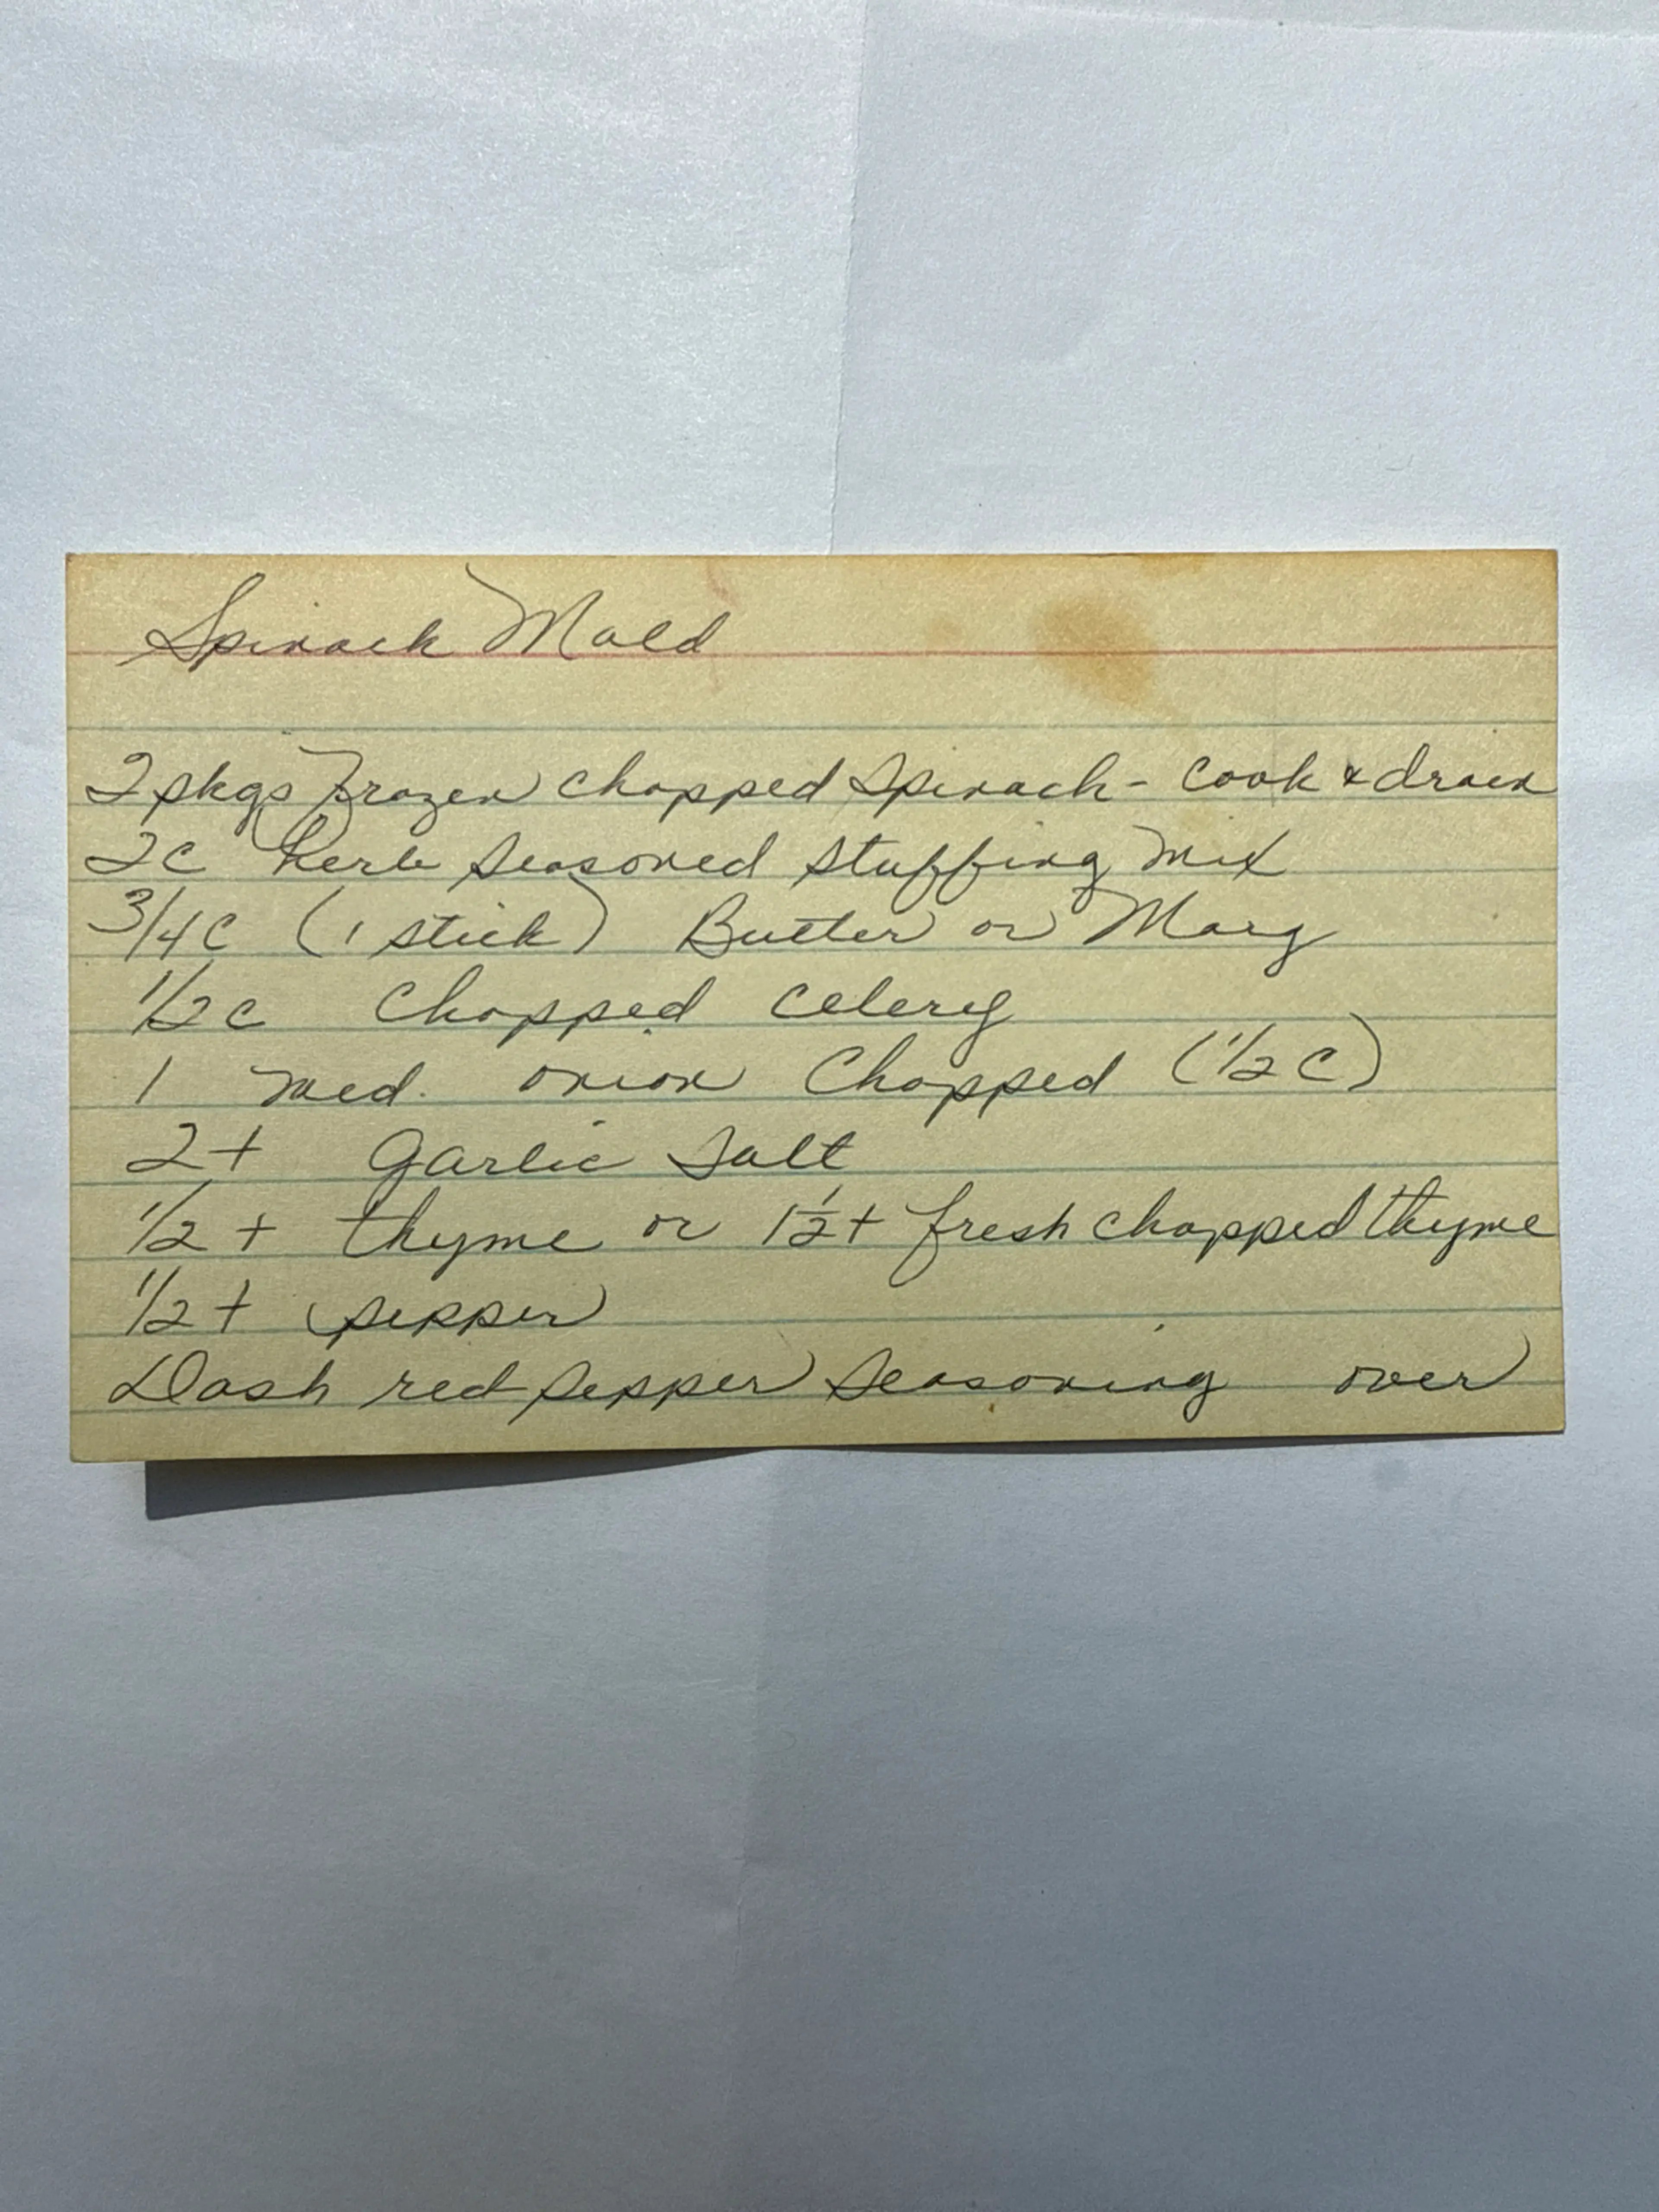 Spinach Mold
2 pkgs frozen chopped spinach - cook & drain
2c herb seasoned stuffing mix
3/4c (1 stick) Butter or Marg
1/2c chopped celery
1 med. onion chopped (1/2 c)
2 t garlic salt
1/2 t thyme or 1 1/2 t fresh chopped thyme
1/2 t pepper
Dash red pepper seasoning over